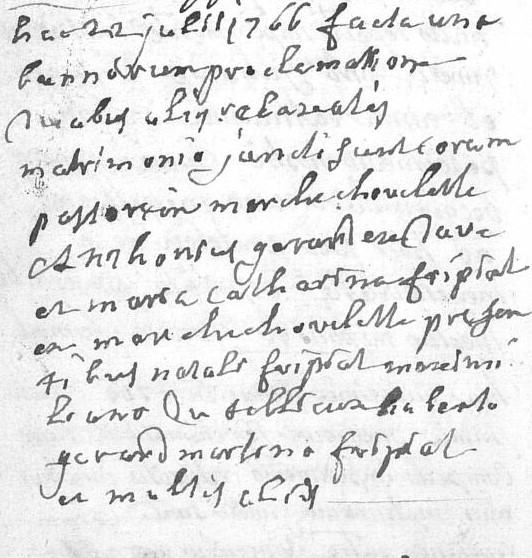 hac 22 julii 1766 facta una
bannorum proclamatione
duabus aliis relaxatis
matrimonio juncti sunt coram
pastore in marche chovelette
Anthonius gerard ex
et maria catharina fripiat
ex marchechovelette presen
tibus natale fripiat maximi
liano huberto
gerard martino fripiat
et multis aliis